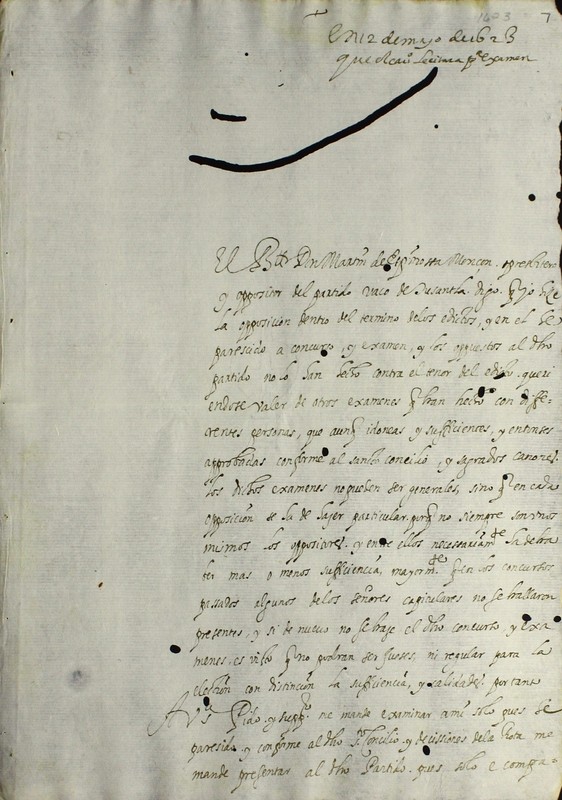 1623 7
En 12 de mayo de 1623
que el cau.º se citara p.ª examen
El B.er Don Martin de monçon. presbitero
y oppositor del partido vaco de digo. q yo hize
la opposicion dentro del termino delos edictos, y en el he
parescido a concurso, y examen, y los oppuestos al dho
partido no lo han hecho contra el tenor del edicto. queri
endose valer de otros examenes q han hecho con diffe-
rentes personas, que aunq idoneas y sufficientes, y entonses
approbadas conforme al santo concilio, y sagrados canones.
los dichos examenes no pueden ser generales, sino q en cada
opposicion se ha de hazer particular. porq no siempre son unos
mismos los oppositores. y entre ellos necesariam.te ha de ha
ber mas o menos sufficiencia, mayorm.te q en los concursos
passados algunos de los señores capitulares no se hallaron
presentes, y si de nuevo no se haze el dho concurso y exa
menes. es visto q no podran ser jueses, ni regular para la
election con distincion la sufficiencia, y calidades. por tanto
A V. S.ª Pido, y supp.co me mande examinar a mi solo pues he
paresido, y conforme al dho S.to Concilio y decissiones de la Rota me
mande presentar al dho Partido. pues solo e compa-